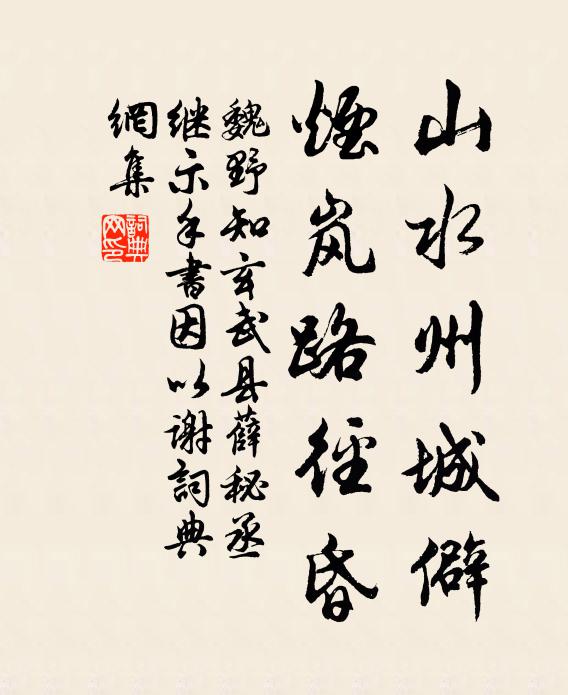 山水州城僻
煙岚路徑昏
魏野知玄武县薛秘丞
继示手書因以谢詞典
網集
詞典
网印